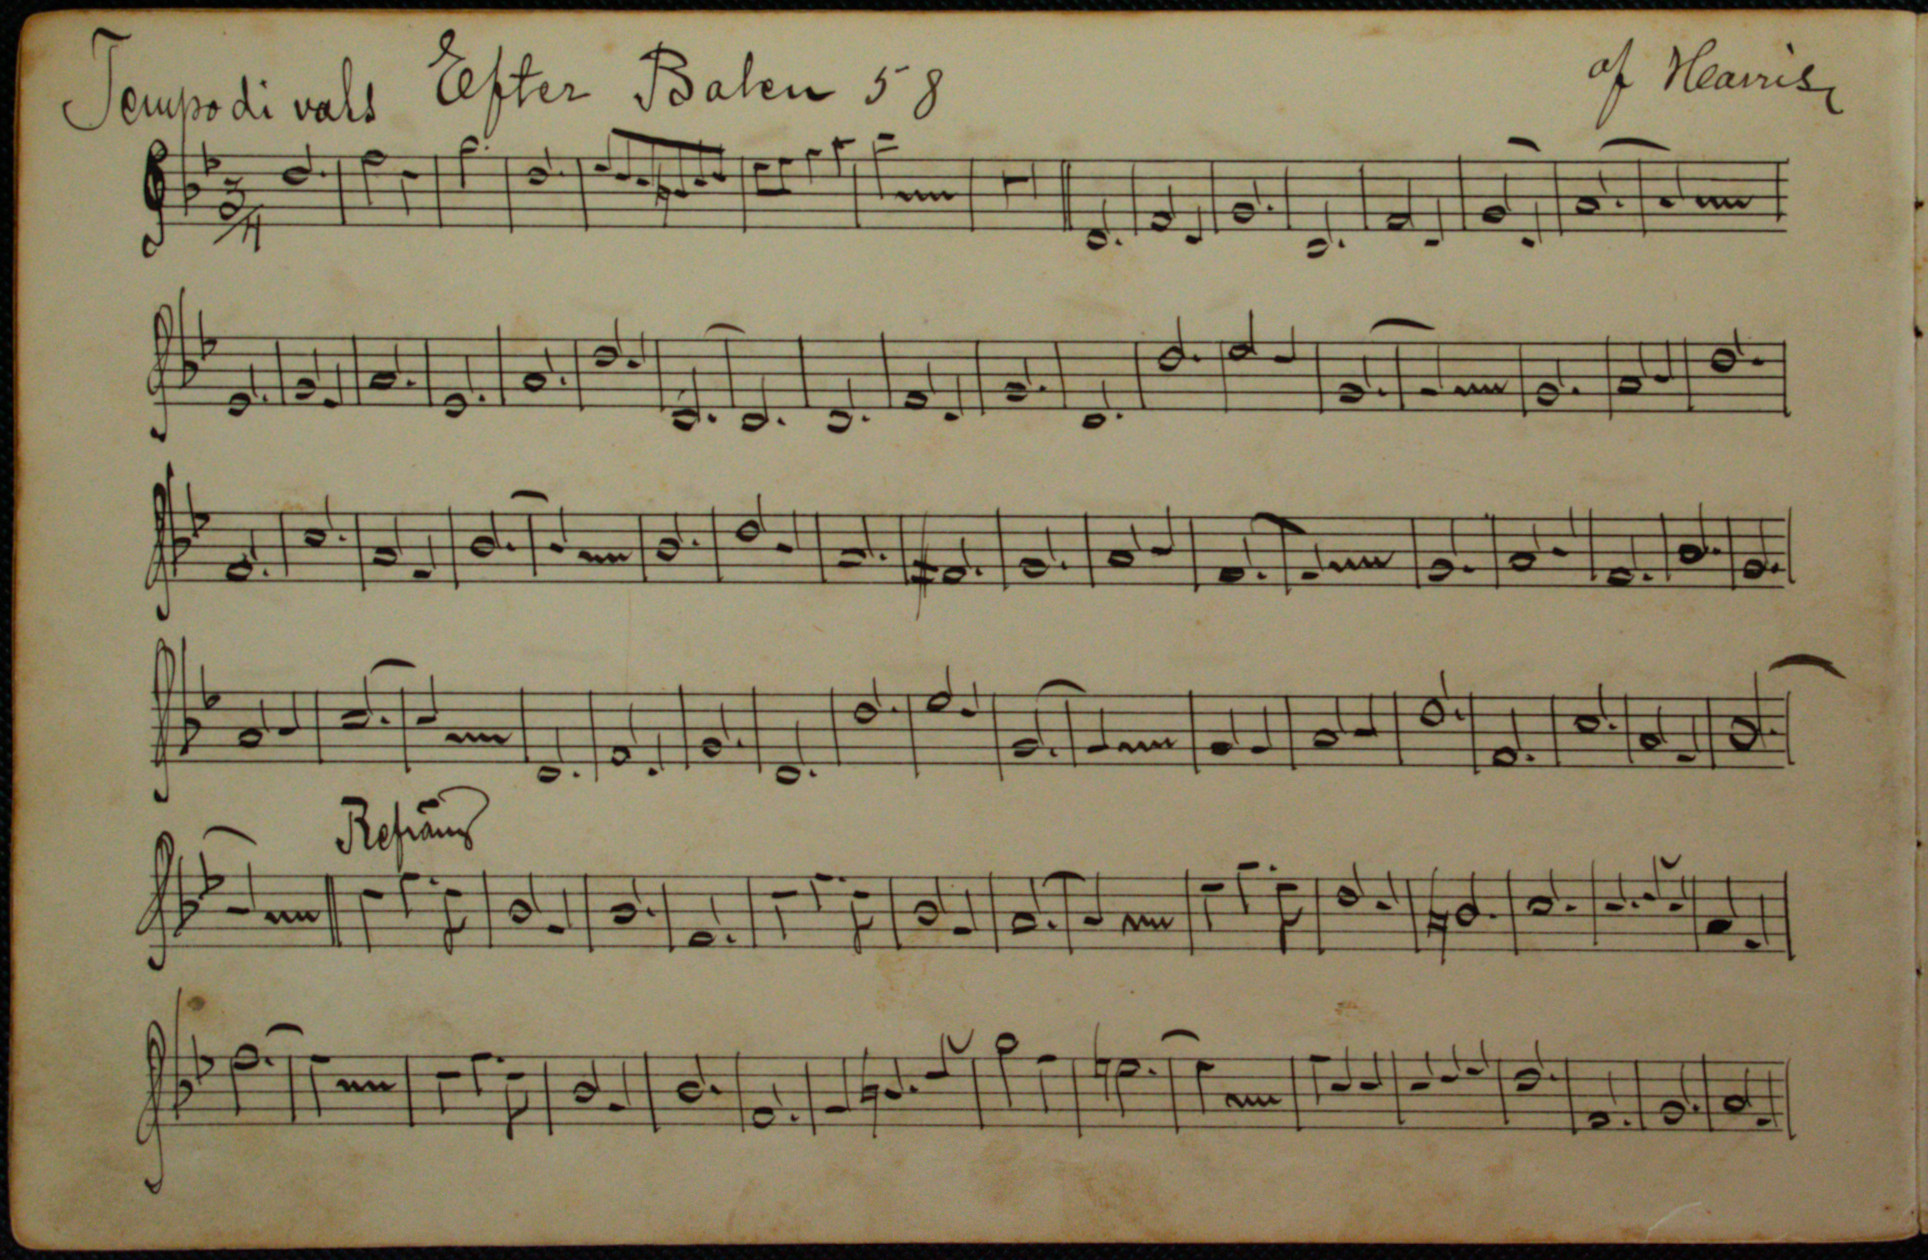 Tempo di vals Efter Balen 58 af Harris
3/4
Refräng